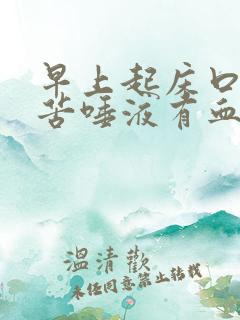 早上起床口
苦唾液有血
溫清歡
未经同意禁止转载